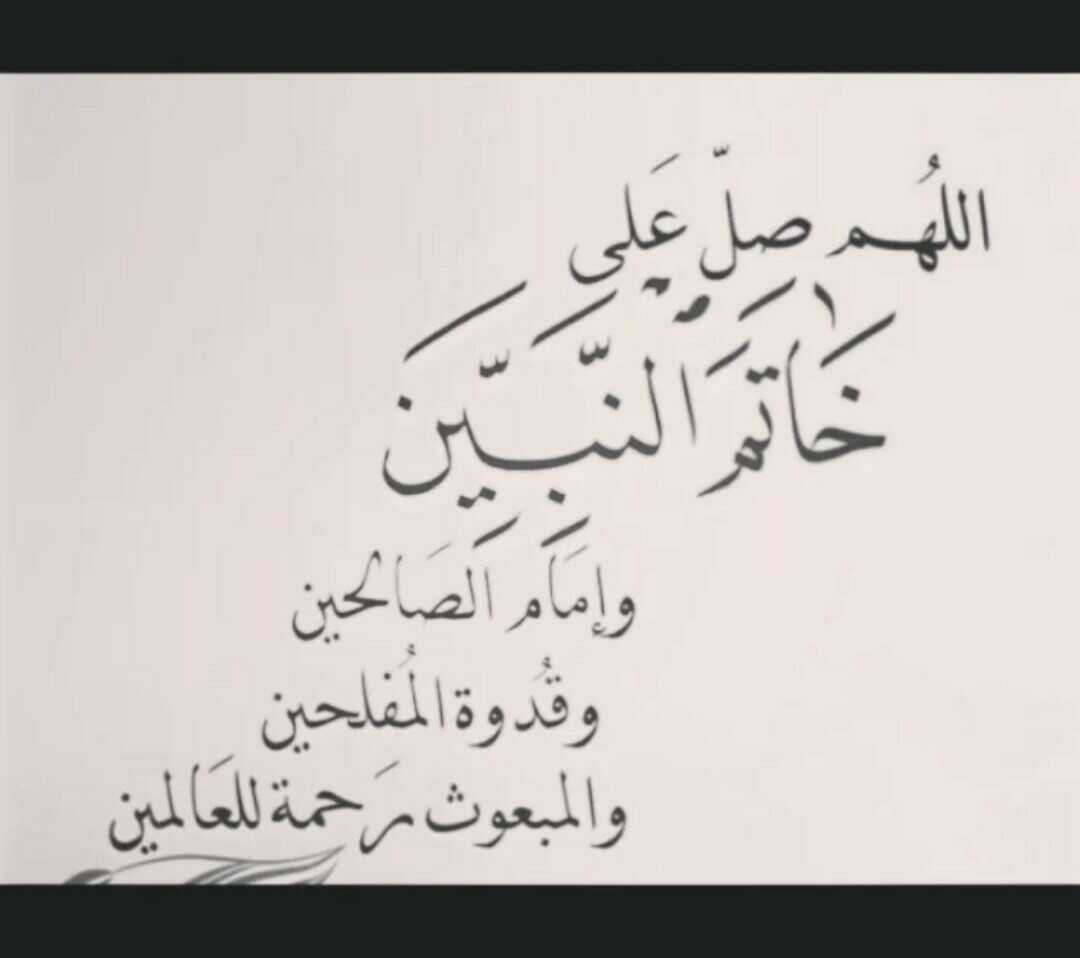 اللهُم صلّ عَلى
خَاتَمَ النَّبِيَّينَ
وإمَام الصَالحين
وقُدوة المُفلحين
والمبعوث رَحمة للعَالمين